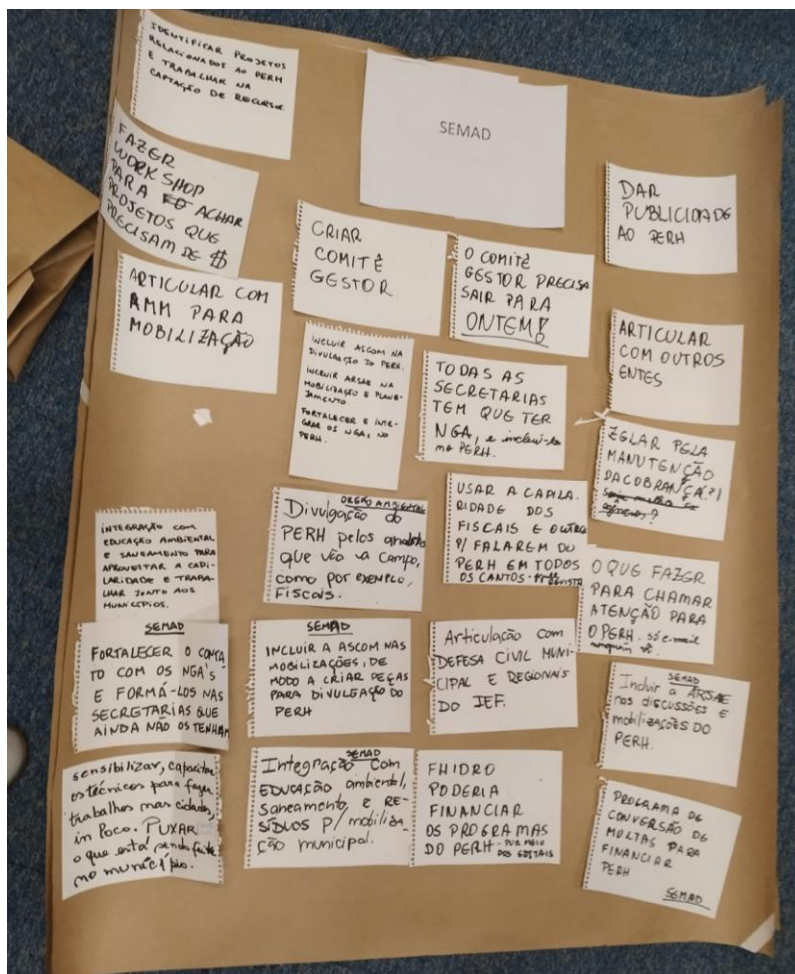 IDENTIFICAR PROJETOS
RELACIONADOS AO PERH
E TRABALHAR NA
CAPTAÇÃO DE RECURSOS.
SEMAD
FAZER
WORK SHOP
PARA ACHAR
PROJETOS QUE
PRECISAM DE $
DAR
PUBLICIDADE
AO PERH
CRIAR
COMITÊ
GESTOR
O COMITÊ
GESTOR PRECISA
SAIR PARA
ONTEM!
ARTICULAR COM
AMM PARA
MOBILIZAÇÃO
ARTICULAR
COM OUTROS
ENTES
INCLUIR ASCOM NA
DIVULGAÇÃO DO PERH.
INCLUIR ARSAE NA
MOBILIZAÇÃO E PLANE-
JAMENTO
FORTALECER E INTE-
GRAR OS NGA, NO
PERH.
TODAS AS
SECRETARIAS
TEM QUE TER
NGA, e incluí-los
no PERH.
ZELAR PELA
MANUTENÇÃO
DA COBRANÇA?!
INTEGRAÇÃO COM
EDUCAÇÃO AMBIENTAL
E SANEAMENTO PARA
APROVEITAR A CAPI-
LARIDADE E TRABA-
LHAR JUNTO AOS
MUNICÍPIOS.
ORGÃO AMBIENTAL
Divulgação do
PERH pelos analistas
que vão a campo,
como por exemplo,
Fiscais.
USAR A CAPILA.
RIDADE DOS
FISCAIS E OUTROS
P/ FALAREM DO
PERH EM TODOS
OS CANTOS - REVISTA
O QUE FAZER
PARA CHAMAR
ATENÇÃO PARA
O PERH. só e-mail
ninguém vê.
SEMAD
FORTALECER O CONTA
TO COM OS NGA'S
E FORMÁ-LOS NAS
SECRETARIAS QUE
AINDA NÃO OS TENHAM
SEMAD
INCLUIR A ASCOM NAS
MOBILIZAÇÕES, DE
MODO A CRIAR PEÇAS
PARA DIVULGAÇÃO DO
PERH
Articulação com
DEFESA CIVIL MUNI-
CIPAL E REGIONAIS
DO IEF.
SEMAD
Incluir a ARSAE
nas discussões e
mobilizações do
PERH.
sensibilizar, capacitar
os técnicos para fazer
trabalhos nas cidades,
in loco. PUXAR
o que está sendo feito
no município.
SEMAD
Integração com
EDUCAÇÃO ambiental,
Saneamento, e RE-
SÍDUOS P/ mobiliza-
ção municipal.
FHIDRO
PODERIA
FINANCIAR
OS PROGRAMAS
DO PERH - POR MEIO
DOS EDITAIS
PROGRAMA DE
CONVERSÃO DE
MULTAS PARA
FINANCIAR
PERH
SEMAD